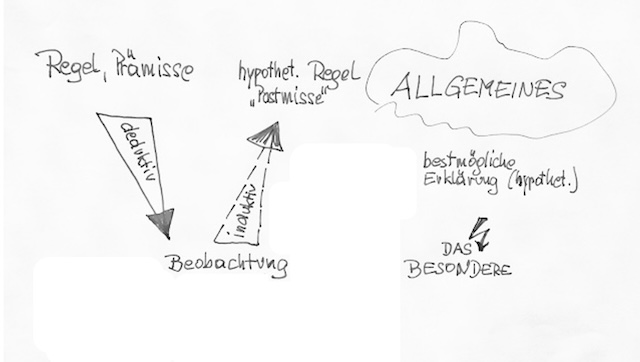 Regel, Prämisse
deduktiv
hypothet. Regel
„Postmisse"
induktiv
Beobachtung
ALLGEMEINES
bestmögliche
Erklärung (hypothet.)
DAS
BESONDERE